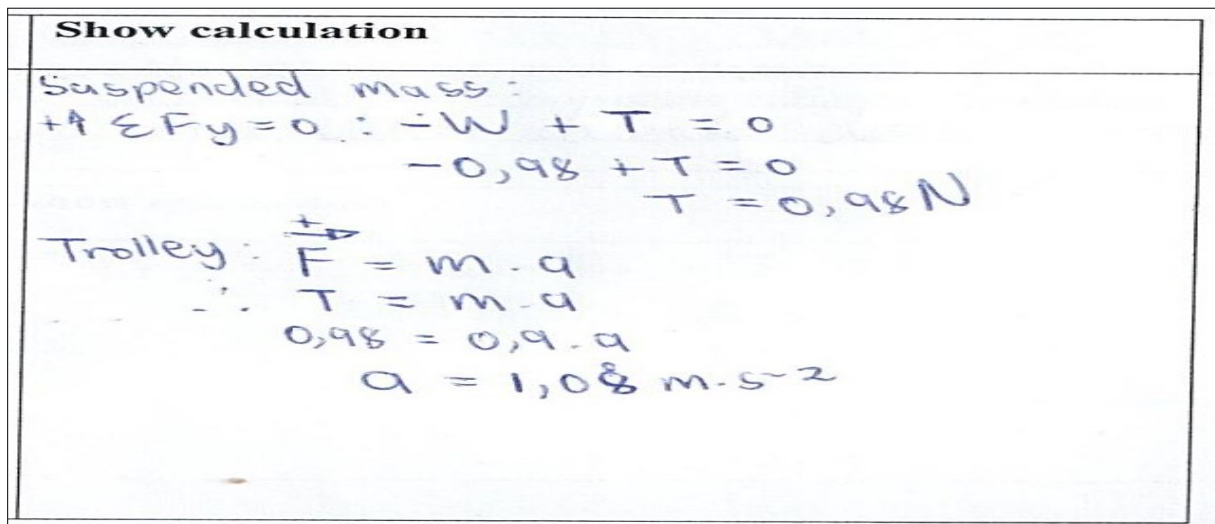 Show calculation
Suspended mass:
+↑ ΣFy = 0 : -W + T = 0
-0,98 + T = 0
T = 0,98N
Trolley: F⃗ = m.a
∴ T = m.a
0,98 = 0,9.a
a = 1,08 m.s-2